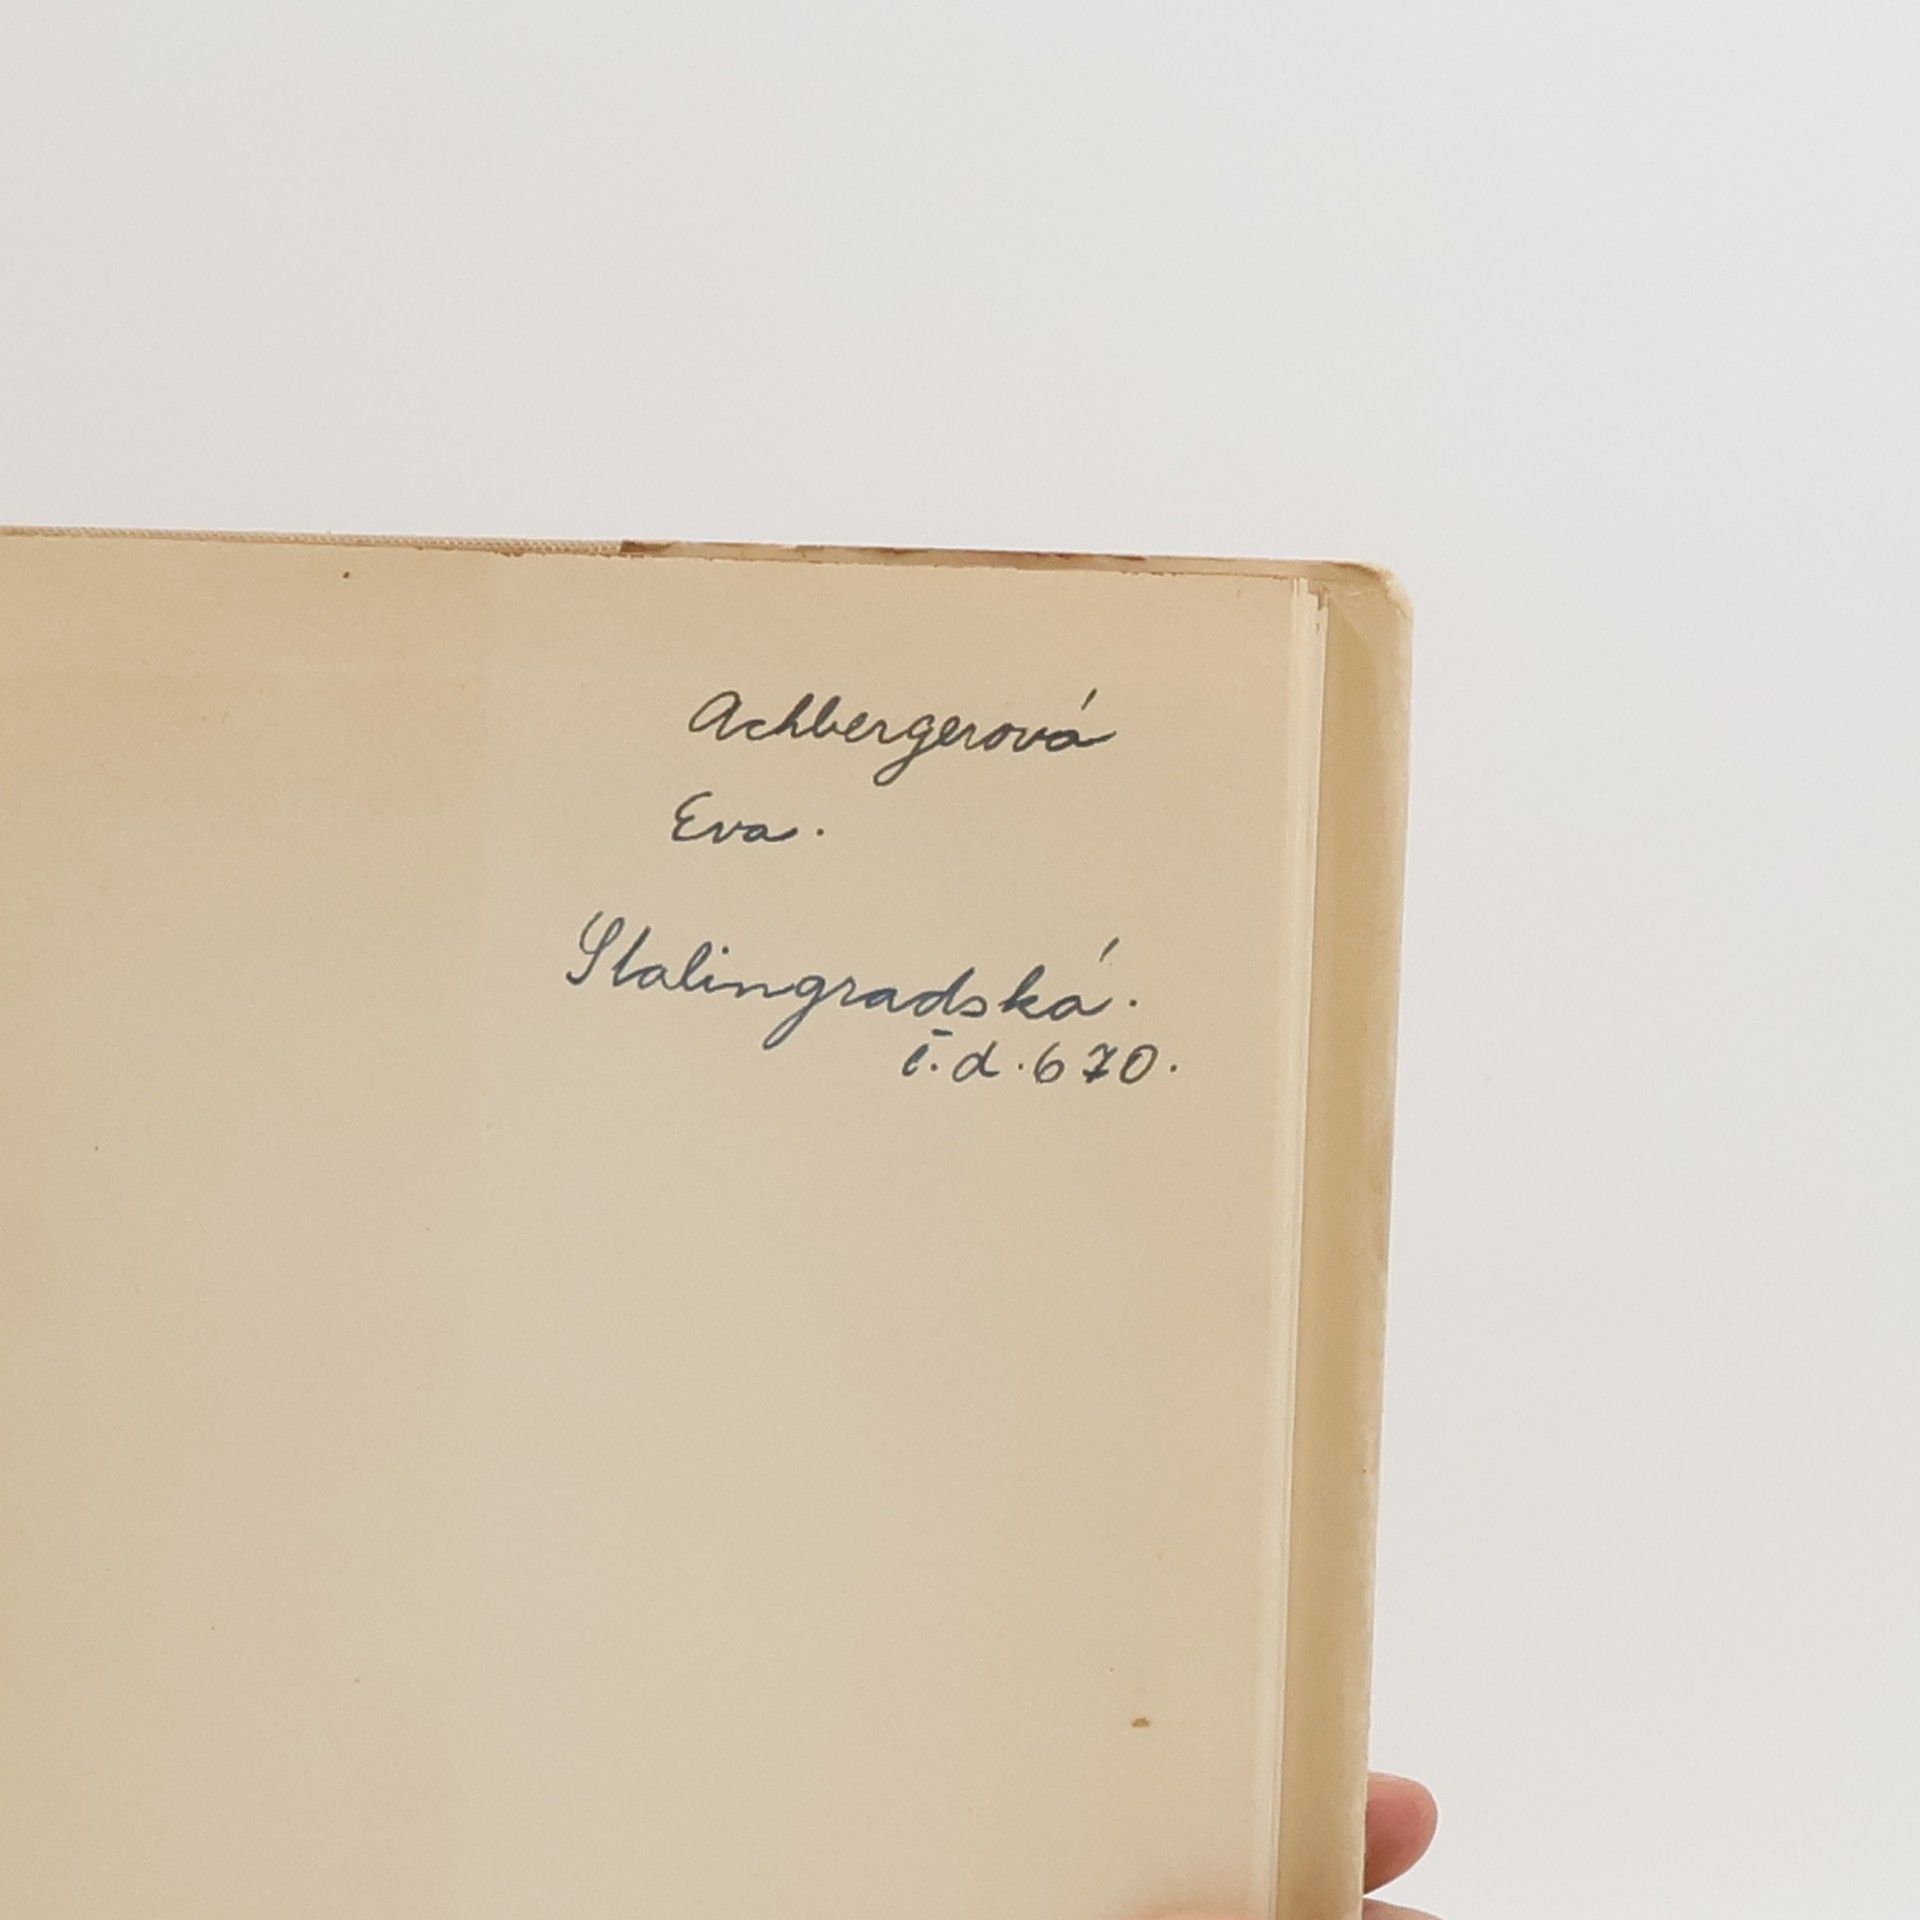 Achbergerová
Eva.
Stalingradská.
č.d.670.